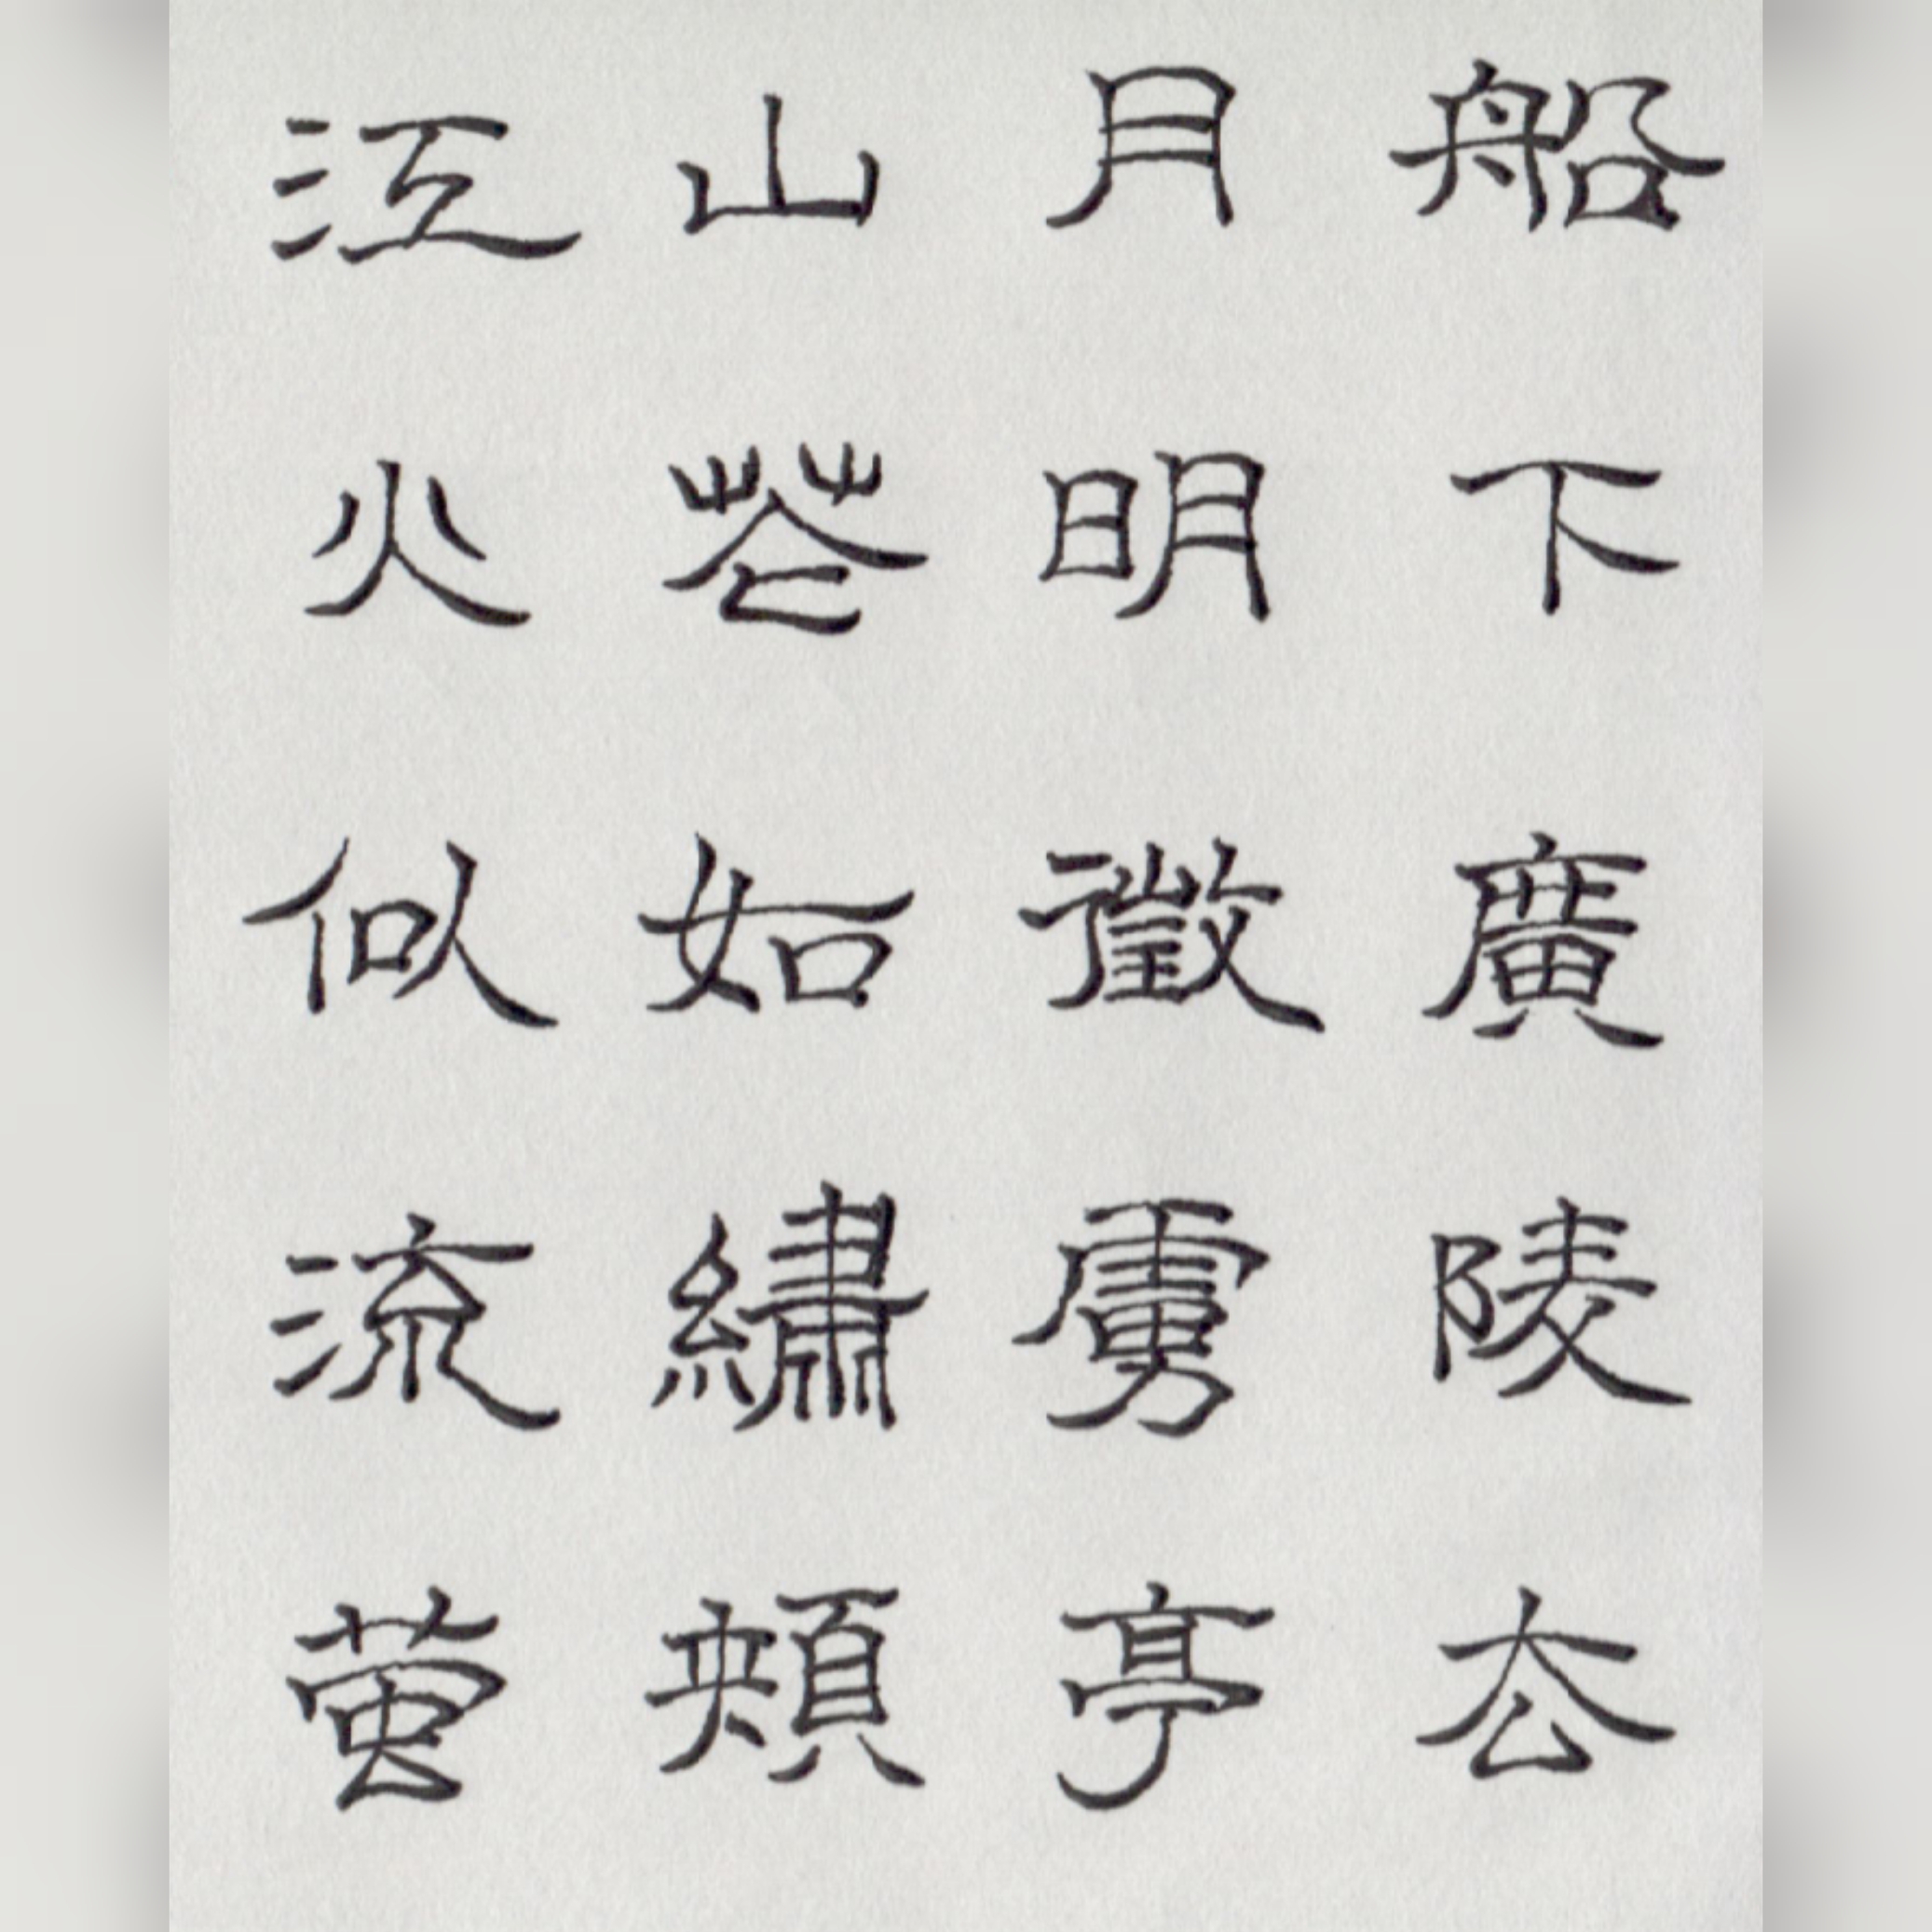 船下廣陵去
月明徵虜亭
山花如繡頰
江火似流萤